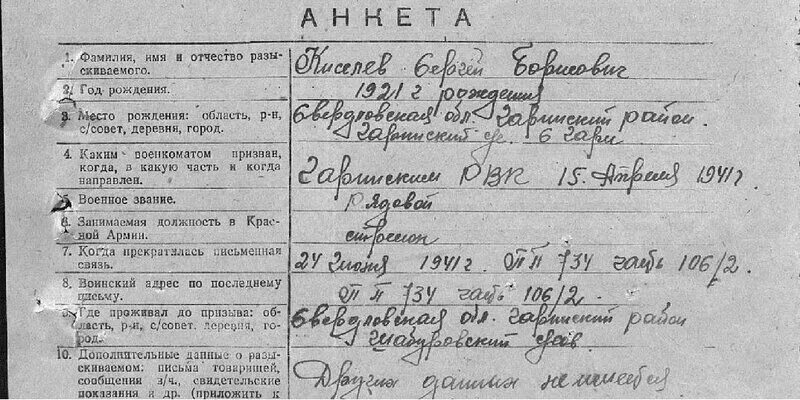 АНКЕТА
1. Фамилия, имя и отчество разы-
скиваемого.
Киселев Сергей Борисович
2. Год рождения.
1921 г рождения
3. Место рождения: область, р-н,
с/совет, деревня, город.
Свердловская обл. Гаринский район.
Гаринский с/с. с Гари
4. Каким военкоматом призван,
когда, в какую часть и когда
направлен.
Гаринским РВК 15. Апреля 1941 г.
5. Военное звание.
Рядовой
6. Занимаемая должность в Крас-
ной Армии.
7. Когда прекратилась письменная
связь.
24 Июня 1941 г. ПП 734 часть 106/2.
8. Воинский адрес по последнему
письму.
ПП 734 часть 106/2.
9. Где проживал до призыва: об-
ласть, р-н, с/совет. деревня, го-
род.
Свердловская обл. Гаринский район
Шабуровский
10. Дополнительные данные о разы-
скиваемом: письма товарищей,
сообщении з/ч., свидетельские
показания и др. (приложить к
Других данных не имеется